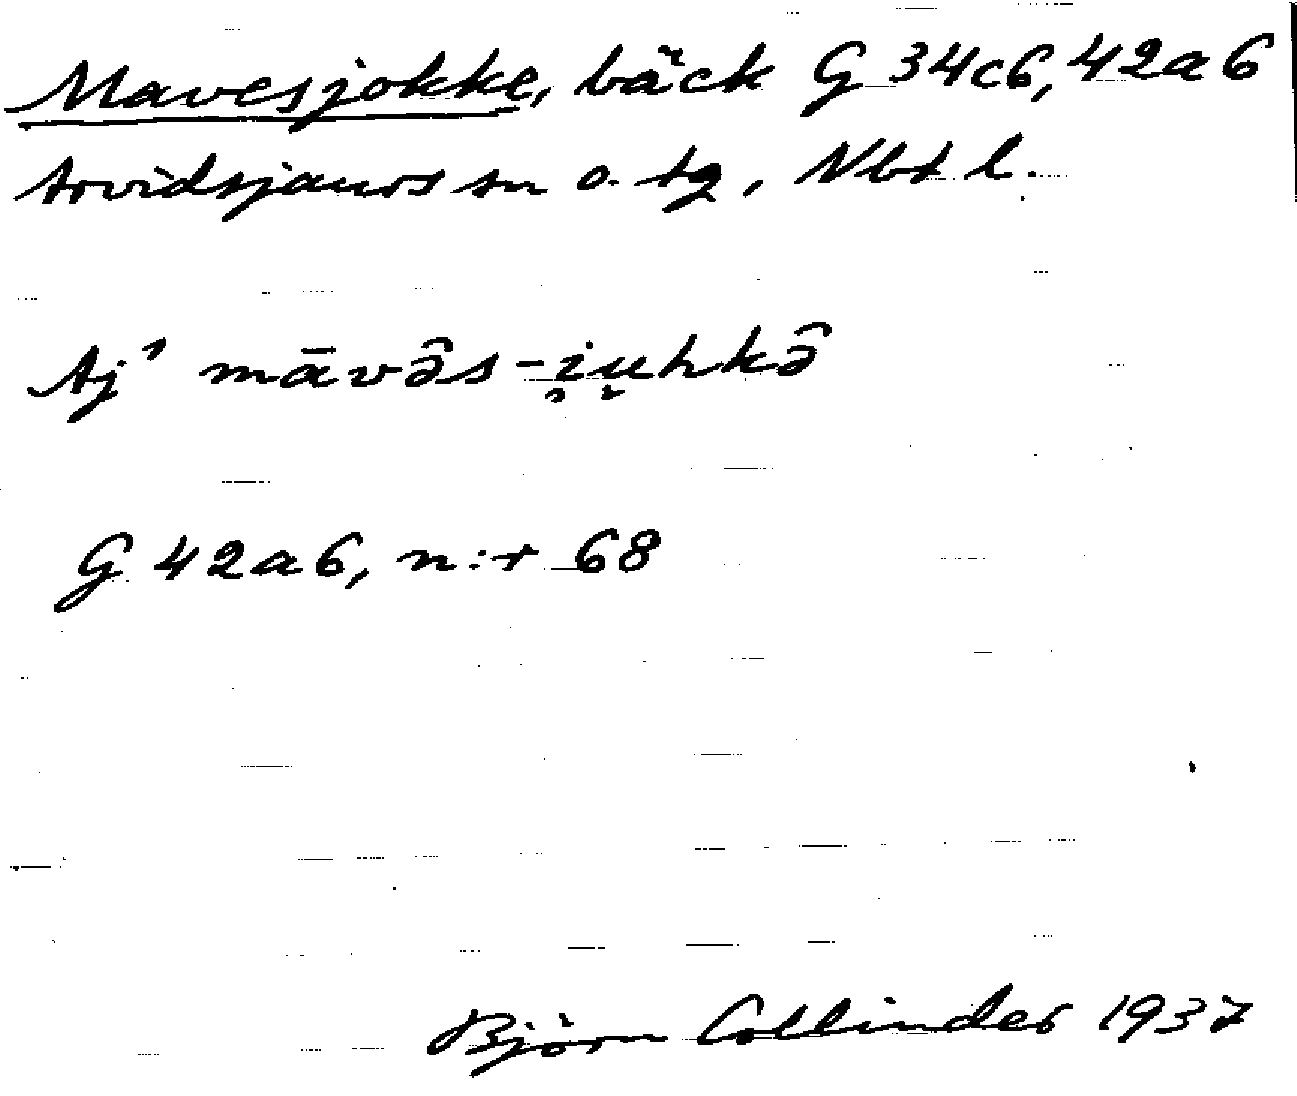 Mavesjokke, bäck G 34c6, 42a6
Arvidsjaurs sn o. tg, Nbt l.
Aj¹ māvə̑s-i̯u̯hkə̑
G 42a6, n:r 68
Björn Collinder 1937